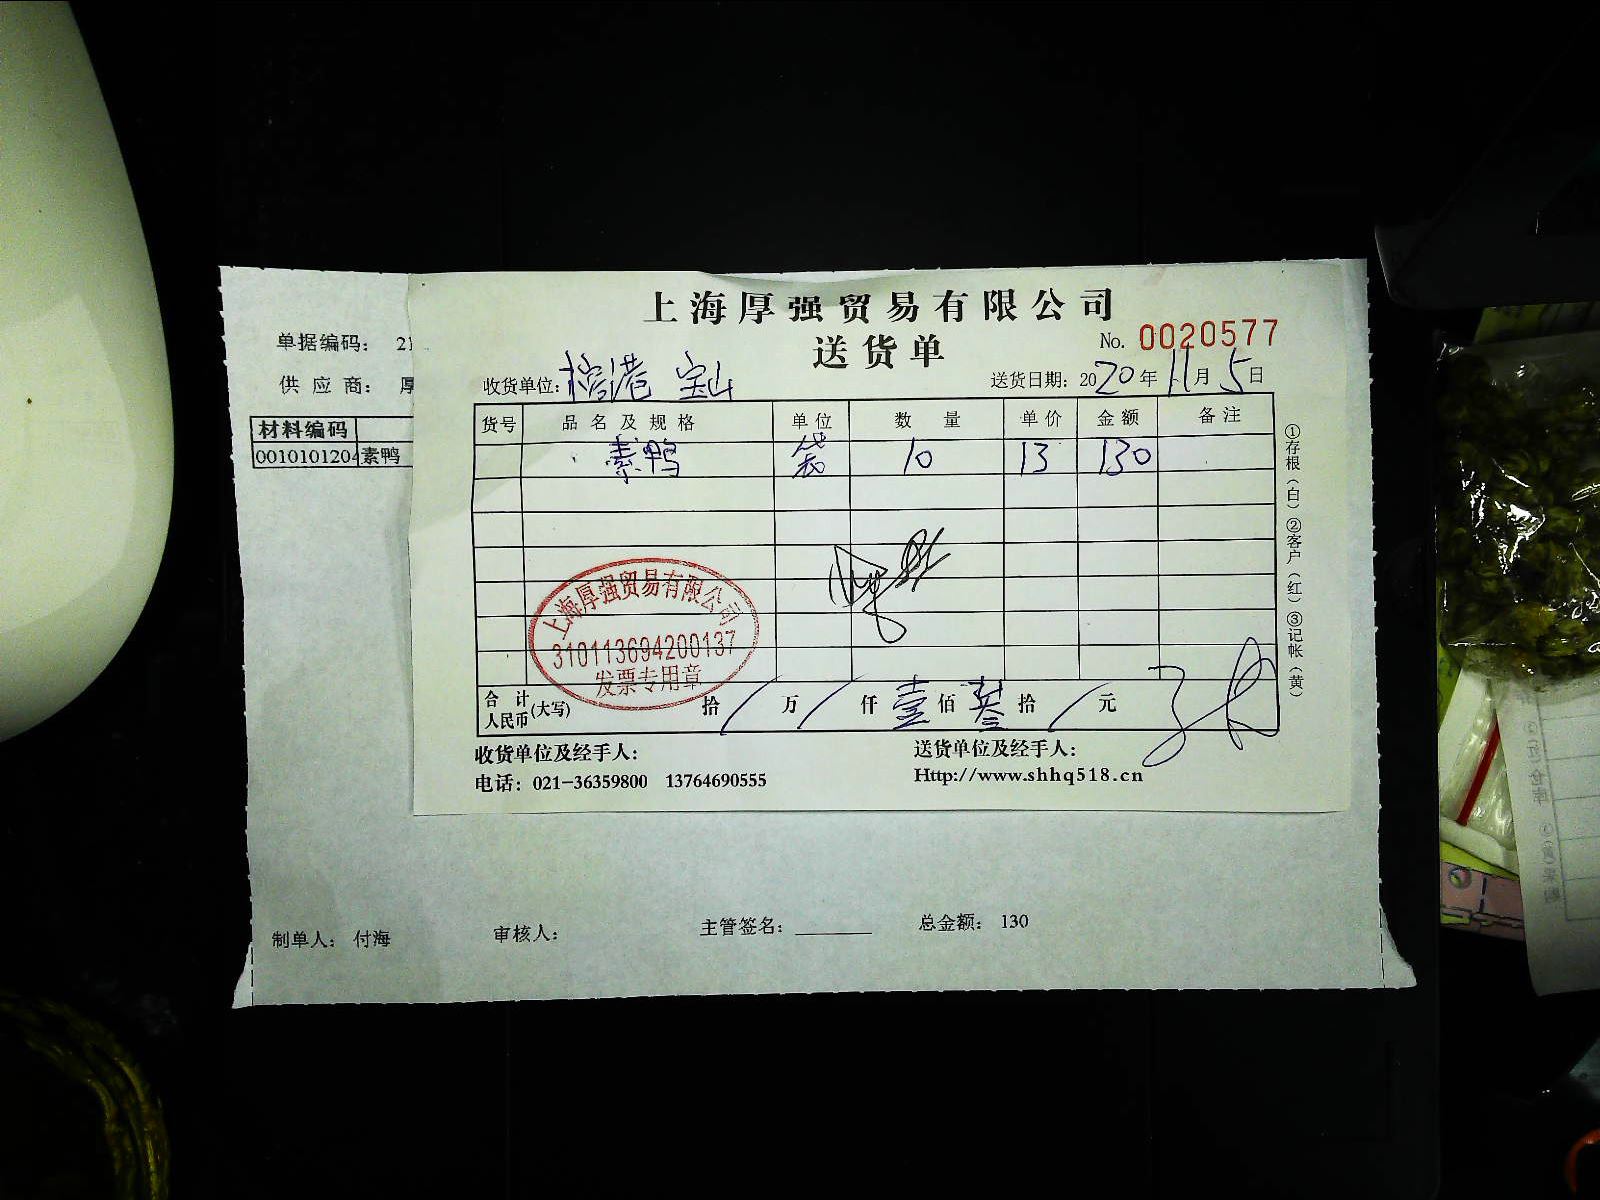 上海厚强贸易有限公司
送货单
No. 0020577
收货单位: 榕港 宝山
送货日期: 2020年11月5日
货号 品名及规格 单位 数量 单价 金额 备注
素鸭 袋 10 13 130
①存根(白)②客户(红)③记帐(黄)
上海厚强贸易有限公司
310113694200137
发票专用章
合计人民币(大写) 拾/万/仟壹佰叁拾/元
收货单位及经手人:
送货单位及经手人:
电话: 021-36359800 13764690555
Http://www.shhq518.cn
单据编码: 21
供应商: 厚
材料编码
0010101204 素鸭
制单人: 付海
审核人:
主管签名:
总金额: 130